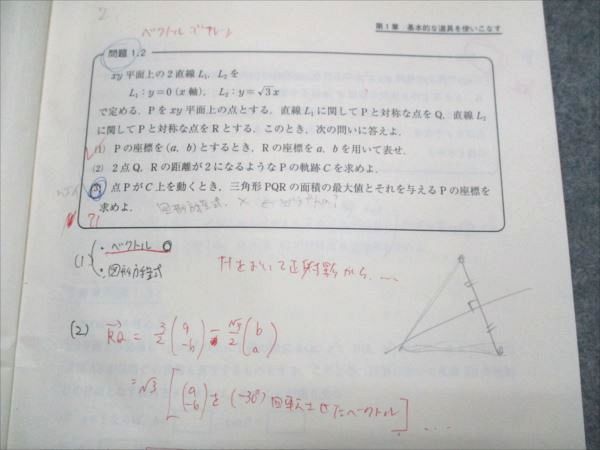 2
第1章 基本的な道具を使いこなす
ベクトル
問題1.2
xy平面上の2直線L₁, L₂を
L₁:y=0(x軸), L₂:y=√3x
で定める. Pをxy平面上の点とする. 直線L₁に関してPと対称な点をQ, 直線L₂
に関してPと対称な点をRとする. このとき, 次の問いに答えよ.
(1) Pの座標を(a, b)とするとき, Rの座標をa, bを用いて表せ.
(2) 2点Q, Rの距離が2になるようなPの軌跡Cを求めよ.
(3) 点PがC上を動くとき, 三角形PQRの面積の最大値とそれを与えるPの座標を
求めよ. 図形方程式. ×
?!
(1) ・ベクトル
・図形方程式
Hをおいて正射影から, ....
(2) RQ→ = 3/2 (a -b) - √3/2 (b a)
= √3 [(a -b)を(-30°)回転させたベクトル] ...